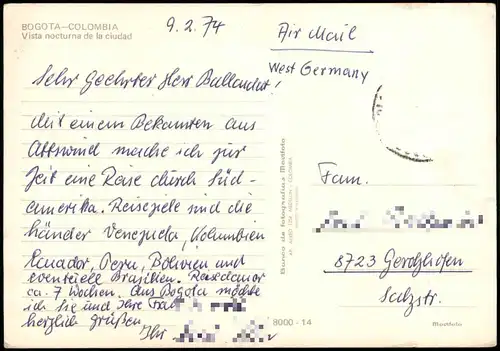 BOGOTA-COLOMBIA
Vista nocturna de la ciudad
9.2.74
Air Mail
West Germany
Sehr geehrter Herr
Mit einem Bekannten aus
mache ich zur
Zeit eine Reise durch Süd-
amerika. Reiseziele sind die
Länder Venezuela, Kolumbien
Ecuador, Peru, Bolivien und
eventuell Brasilien. Reisedauer
ca. 7 Wochen. Aus Bogota möchte
ich Sie und Ihre Frau
herzlich grüßen
Ihr
Fam.
8723 Gerolzhofen
Salzstr.
8000-14
Movifoto